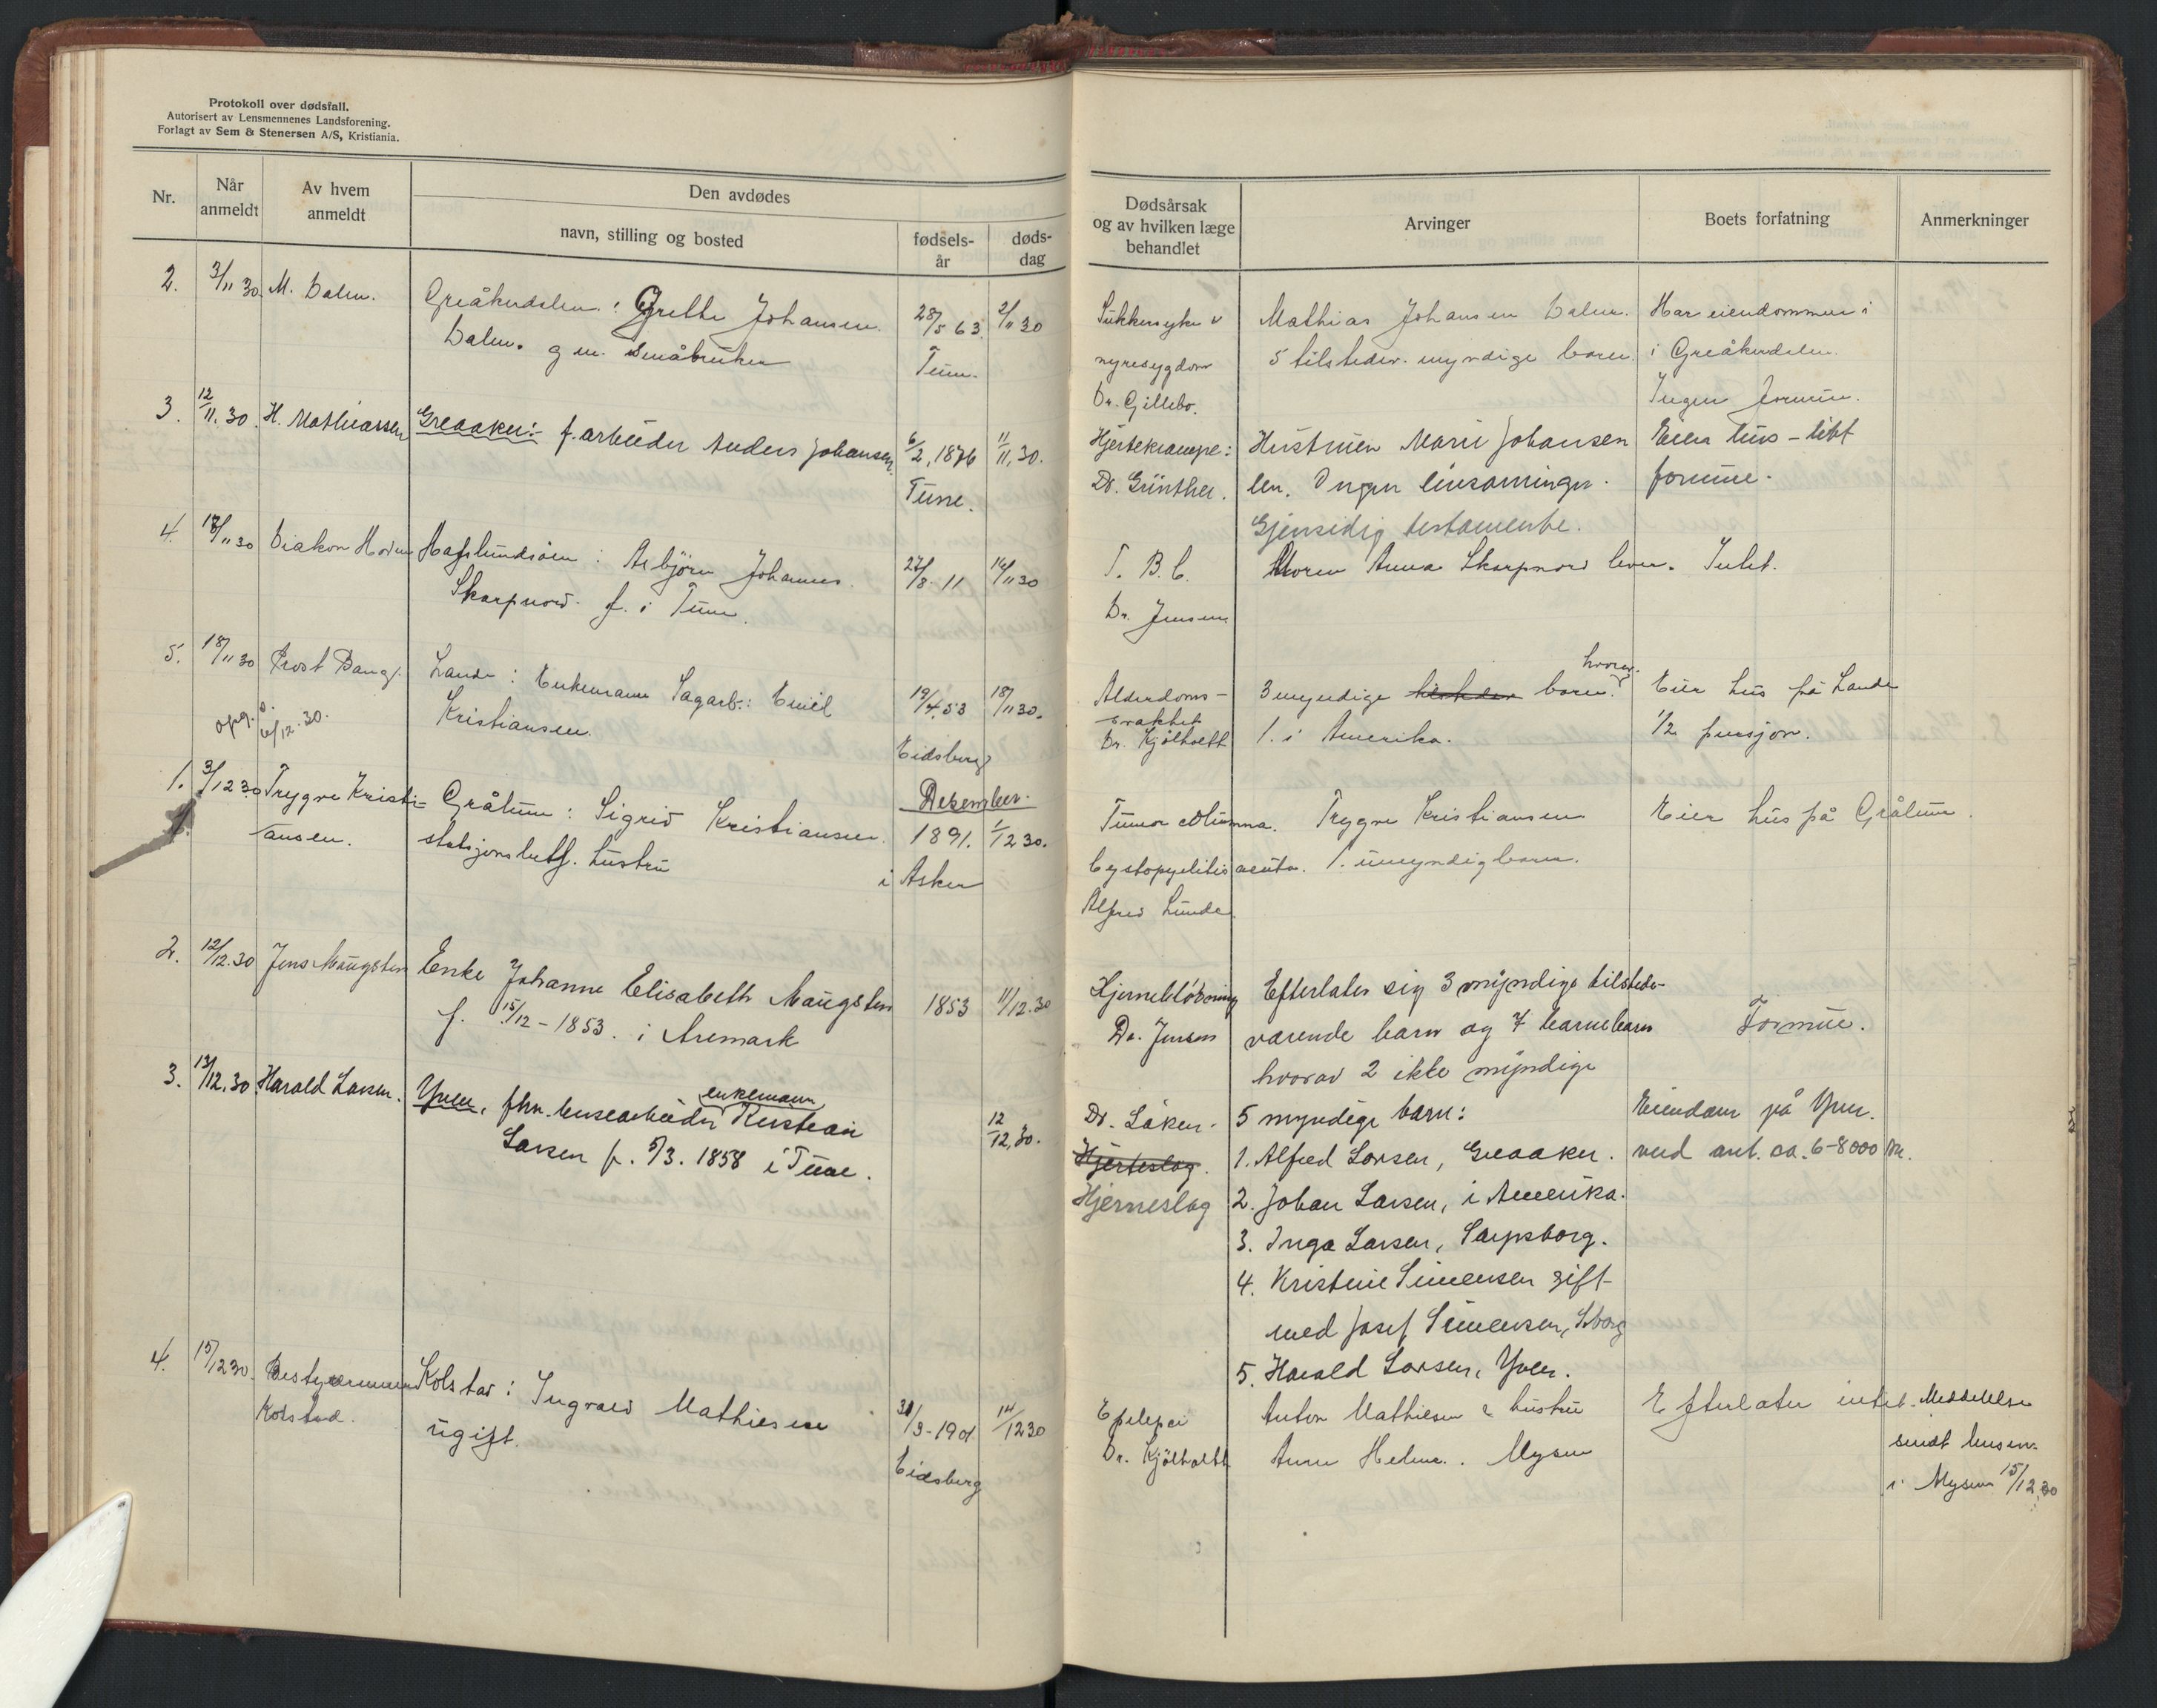 Protokoll over dødsfall.
Autorisert av Lensmennenes Landsforening.
Forlagt av Sem & Stenersen A/S, Kristiania.
Nr.
Når anmeldt
Av hvem anmeldt
Den avdødes
navn, stilling og bosted
fødsels-år
døds-dag
Dødsårsak og av hvilken læge behandlet
Arvinger
Boets forfatning
Anmerkninger
2. 3/11 30. M. Dalen. Greåkerdalen: Grethe Johansen 28/5 63. 2/11 30
Dalen. gm. Småbruker
Tune.
Sukkersyke &
nyresygdom
Dr. Gillebo.
Mathias Johansen Dalen.
5 tilstedev. myndige barn.
Har eiendommer i
i Greåkerdalen.
Ingen formue.
3. 12/11.30. H. Mathiassen Greaaker: f. arbeider Anders Johansen. 6/2, 1876 11/11.30.
Tune.
Hjertekrampe:
Dr. Günther.
Hustruen Marie Johansen
lev. Ingen livsarvinger.
Gjensidig testamente.
Eier hus - litt
formue.
4. 18/11 30 Diakon Moen Hafslundsøen: Asbjörn Johannes 27/8-11 16/11 30
Skarpnord f. i Tune.
T. B. C.
Dr. Jensen
Moren Anna Skarpnord lever. Intet.
5. 18/11 30 Prost Bang. Lande: Enkemann Sagarb.: Emil 19/4.53 18/11 30.
Kristiansen.
Eidsberg
opg. s.
6/12.30.
Alderdoms-
svakhet
Dr. Kjölholtt
3 myndige barn. hvorav
1. i Amerika.
Eier hus på Lande
1/2 pensjon.
Desember.
1. 3/12 30 Trygve Kristi- Grålum: Sigrid Kristiansen 1891. 1/12 30.
ansen. stasjonsbetj. hustru
i Asker
Tumor columna.
Cystopyelitis acuta.
Alfred Lunde
Trygve Kristiansen
1. umyndig barn.
Eier hus på Grålum.
2. 12/12.30 Jens Maugsten Enke Johanne Elisabeth Maugsten 1853 11/12.30
f. 15/12-1853. i Aremark
Hjerneblödning
Dr. Jensen
Efterlater sig 3 myndige tilstede-
værende barn og 7 barnebarn
hvorav 2 ikke myndige
Formue.
3. 13/12.30. Harald Larsen. Yven, fhv. bruksarbeider enkemann Kristian 12/12.30.
Larsen f. 5/3. 1858 i Tune.
Dr. Låken.
Hjerteslag.
Hjerneslag
5 myndige barn:
1. Alfred Larsen, Greaaker.
2. Johan Larsen, i Amerika.
3. Inga Larsen, Sarpsborg.
4. Kristine Simensen gift
med Josef Simensen, S.borg
5. Harald Larsen, Yven.
Eiendom på Yven.
verd ant. ca. 6-8000 kr.
4. 15/12 30. Bestyrerinnen Kolstad: Ingvald Mathiesen 31/3-1901 14/12 30
Kolstad. ugift.
Eidsberg
Epilepsi
Dr. Kjölholtt
Anton Mathiesen & hustru
Anna Helene. Mysen
Efterlater intet.
Meddelelse
sendt lensm.
i Mysen 15/12.30